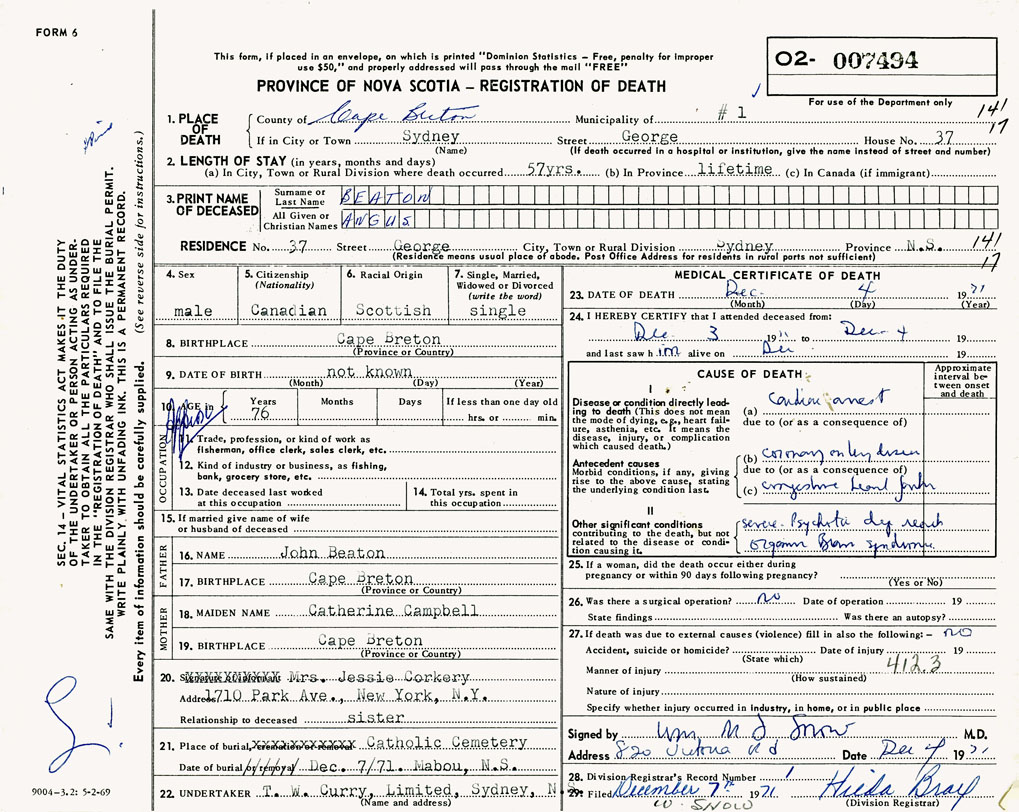 FORM 6
This form, if placed in an envelope, on which is printed "Dominion Statistics – Free, penalty for improper
use $50," and properly addressed will pass through the mail "FREE"
PROVINCE OF NOVA SCOTIA – REGISTRATION OF DEATH
02- 007434
For use of the Department only
141
17
1. PLACE OF DEATH
County of Cape Breton Municipality of # 1
If in City or Town Sydney Street George House No. 37
(Name) (If death occurred in a hospital or institution, give the name instead of street and number)
2. LENGTH OF STAY (in years, months and days)
(a) In City, Town or Rural Division where death occurred 57yrs. (b) In Province lifetime (c) In Canada (if immigrant)
3. PRINT NAME OF DECEASED
Surname or Last Name BEATON
All Given or Christian Names ANGUS
RESIDENCE No. 37 Street George City, Town or Rural Division Sydney Province N.S. 141
(Residence means usual place of abode. Post Office Address for residents in rural parts not sufficient) 17
4. Sex
male
5. Citizenship
(Nationality)
Canadian
6. Racial Origin
Scottish
7. Single, Married,
Widowed or Divorced
(write the word)
single
8. BIRTHPLACE Cape Breton
(Province or Country)
9. DATE OF BIRTH not known
(Month) (Day) (Year)
10. AGE in Years Months Days If less than one day old
76 hrs. or min.
OCCUPATION
11. Trade, profession, or kind of work as
fisherman, office clerk, sales clerk, etc.
12. Kind of industry or business, as fishing,
bank, grocery store, etc.
13. Date deceased last worked
at this occupation
14. Total yrs. spent in
this occupation
15. If married give name of wife
or husband of deceased
FATHER
16. NAME John Beaton
17. BIRTHPLACE Cape Breton
(Province or Country)
MOTHER
18. MAIDEN NAME Catherine Campbell
19. BIRTHPLACE Cape Breton
(Province or Country)
20. Mrs. Jessie Corkery
Address 1710 Park Ave., New York, N.Y.
Relationship to deceased sister
21. Place of burial, cremation or removal Catholic Cemetery
Date of burial or removal Dec. 7/71. Mabou, N.S.
22. UNDERTAKER T. W. Curry, Limited, Sydney, N
(Name and address)
MEDICAL CERTIFICATE OF DEATH
23. DATE OF DEATH Dec. 4 1971
(Month) (Day) (Year)
24. I HEREBY CERTIFY that I attended deceased from:
Dec. 3 1971 to Dec. 4 19
and last saw him alive on Dec 19
CAUSE OF DEATH
Approximate
interval be-
tween onset
and death
I
Disease or condition directly lead-
ing to death (This does not mean
the mode of dying, e.g., heart fail-
ure, asthenia, etc. It means the
disease, injury, or complication
which caused death.)
(a) Cardiac arrest
due to (or as a consequence of)
Antecedent causes
Morbid conditions, if any, giving
rise to the above cause, stating
the underlying condition last.
(b) coronary artery disease
due to (or as a consequence of)
(c) congestive heart failure
II
Other significant conditions
contributing to the death, but not
related to the disease or condi-
tion causing it.
severe Psychotic dep reach
organic Brain syndrome
25. If a woman, did the death occur either during
pregnancy or within 90 days following pregnancy?
(Yes or No)
26. Was there a surgical operation? no Date of operation 19
State findings Was there an autopsy?
27. If death was due to external causes (violence) fill in also the following: – NO
Accident, suicide or homicide? Date of injury 19
(State which)
Manner of injury 412.3
(How sustained)
Nature of injury
Specify whether injury occurred in industry, in home, or in public place
Signed by Wm. M. J. Snow M.D.
Address 820 Victoria Rd Date Dec 4 1971
28. Division Registrar's Record Number 1
29. Filed December 7th 1971 Hilda Bray
(Division Registrar)
W. SNOW
SEC. 14 – VITAL STATISTICS ACT MAKES IT THE DUTY
OF THE UNDERTAKER OR PERSON ACTING AS UNDER-
TAKER TO OBTAIN ALL THE PARTICULARS REQUIRED
IN THE "REGISTRATION OF DEATH" AND TO FILE THE
SAME WITH THE DIVISION REGISTRAR WHO SHALL ISSUE THE BURIAL PERMIT.
WRITE PLAINLY, WITH UNFADING INK. THIS IS A PERMANENT RECORD.
Every item of information should be carefully supplied. (See reverse side for instructions.)
9004-3.2: 5-2-69